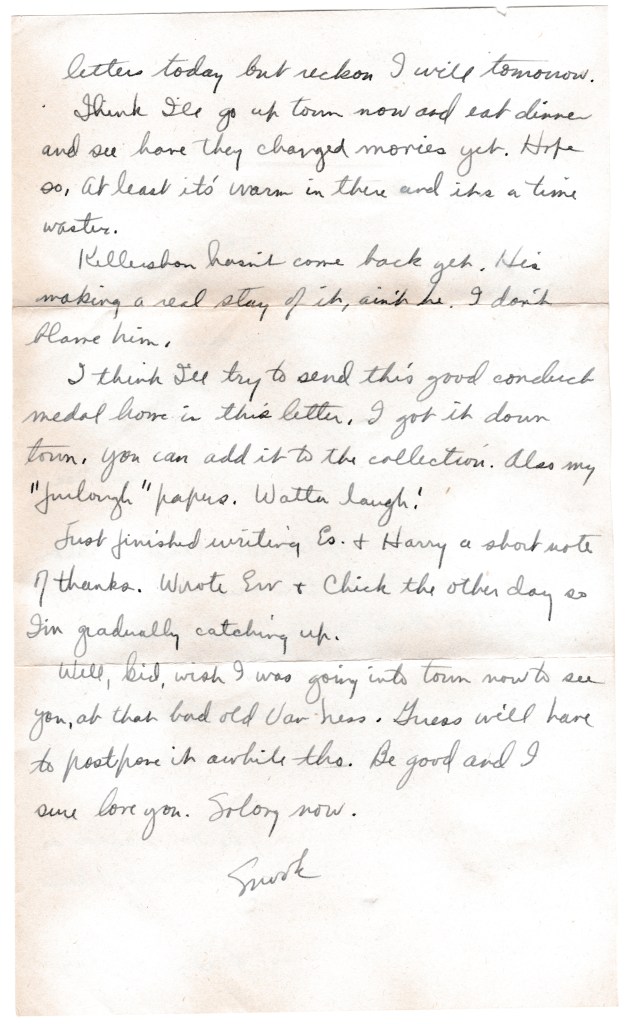 letters today but reckon I will tomorrow.
Think I'll go up town now and eat dinner
and see have they changed movies yet. Hope
so. At least it's warm in there and its a time
waster.
Kellershon hasn't come back yet. His
making a real stay of it, ain't he. I don't
blame him.
I think I'll try to send this good conduct
medal home in this letter. I got it down
town. You can add it to the collection. Also my
"furlough" papers. Watta laugh!
Just finished writing Es. + Harry a short note
of thanks. Wrote Erv + Chick the other day so
I'm gradually catching up.
Well, kid, wish I was going into town now to see
you, at that bad old Van Ness. Guess we'll have
to postpone it awhile tho. Be good and I
sure love you. Solong now.
Snook